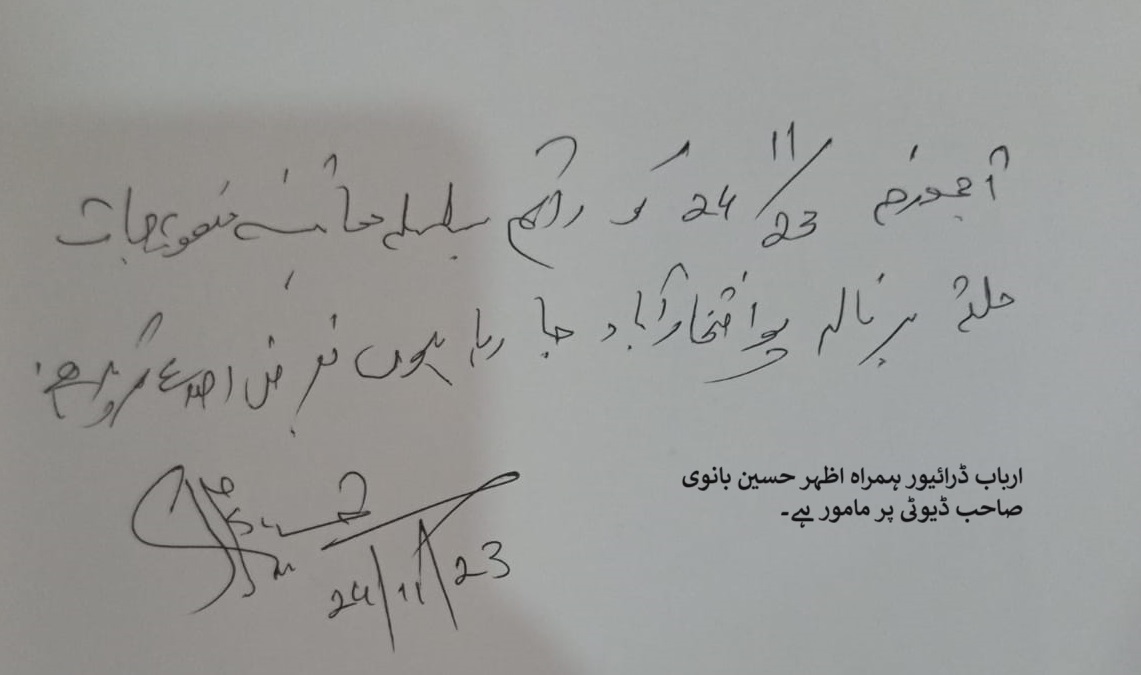 آجمورخہ 24/11/23 کو راقم بسلسلہ معائنہ منصوبہ جات
حلقہ برنالہ پوا افتخارآباد جا رہا ہوں بغرض اطلاع تحریر ہے۔
24/11/23
ارباب ڈرائیور ہمراہ اظہر حسین بانوی
صاحب ڈیوٹی پر مامور ہے۔